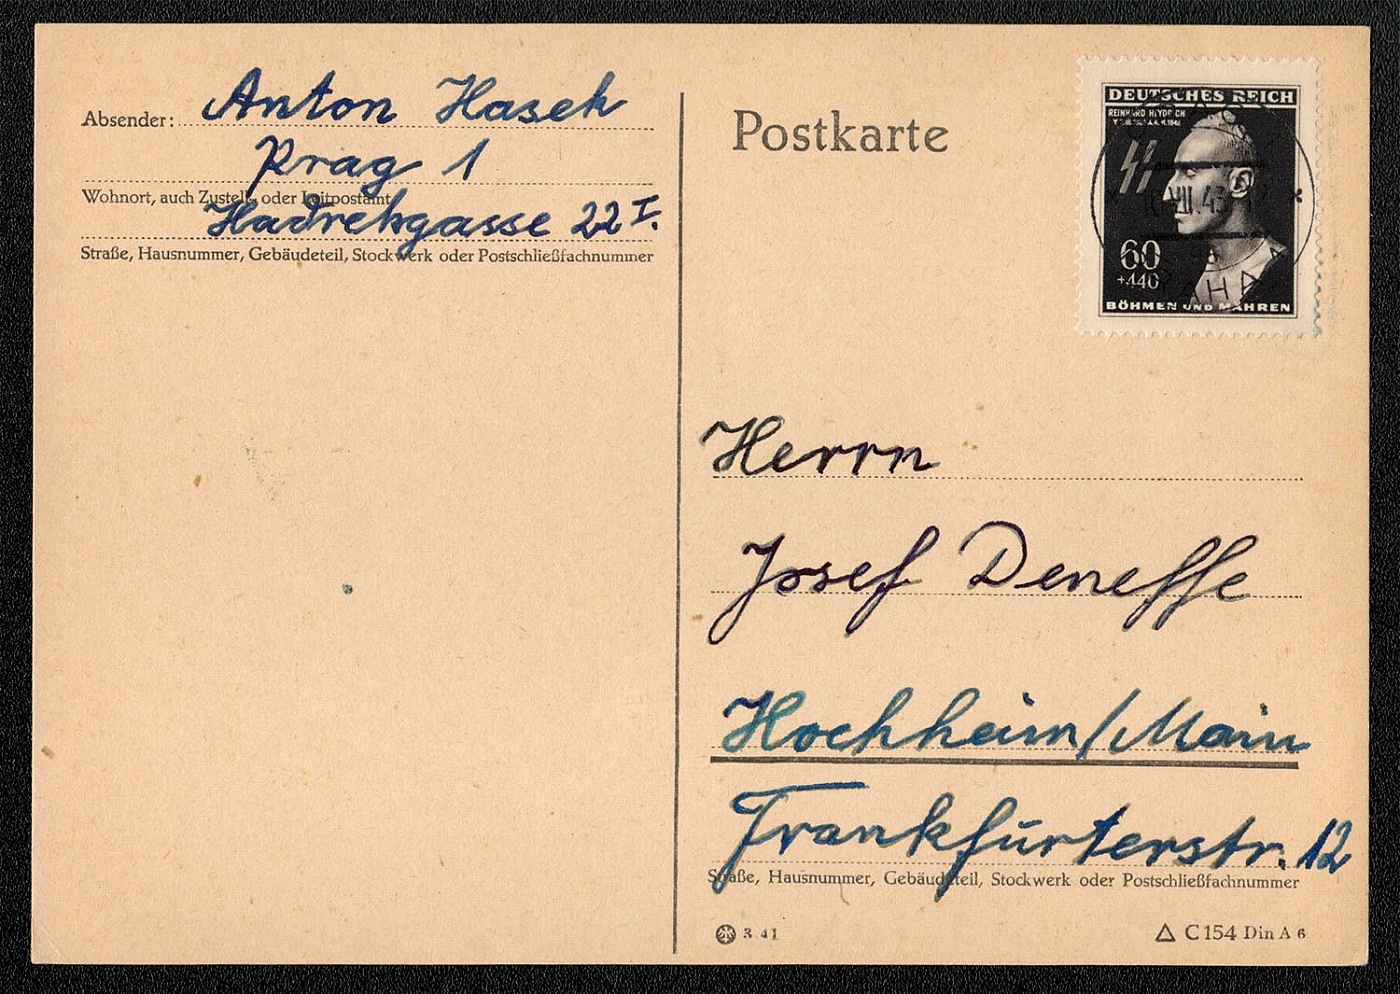 Absender: Anton Hasek
Prag 1
Wohnort, auch Zustell- oder Leitpostamt
Hadrekgasse 22 I.
Straße, Hausnummer, Gebäudeteil, Stockwerk oder Postschließfachnummer
Postkarte
DEUTSCHES REICH
REINHARD HEYDRICH
60
+440
BÖHMEN UND MÄHREN
10.VII.43
PRAHA
Herrn
Josef Deneffe
Hochheim/Main
Frankfurterstr. 12
Straße, Hausnummer, Gebäudeteil, Stockwerk oder Postschließfachnummer
3 41
C 154 Din A 6